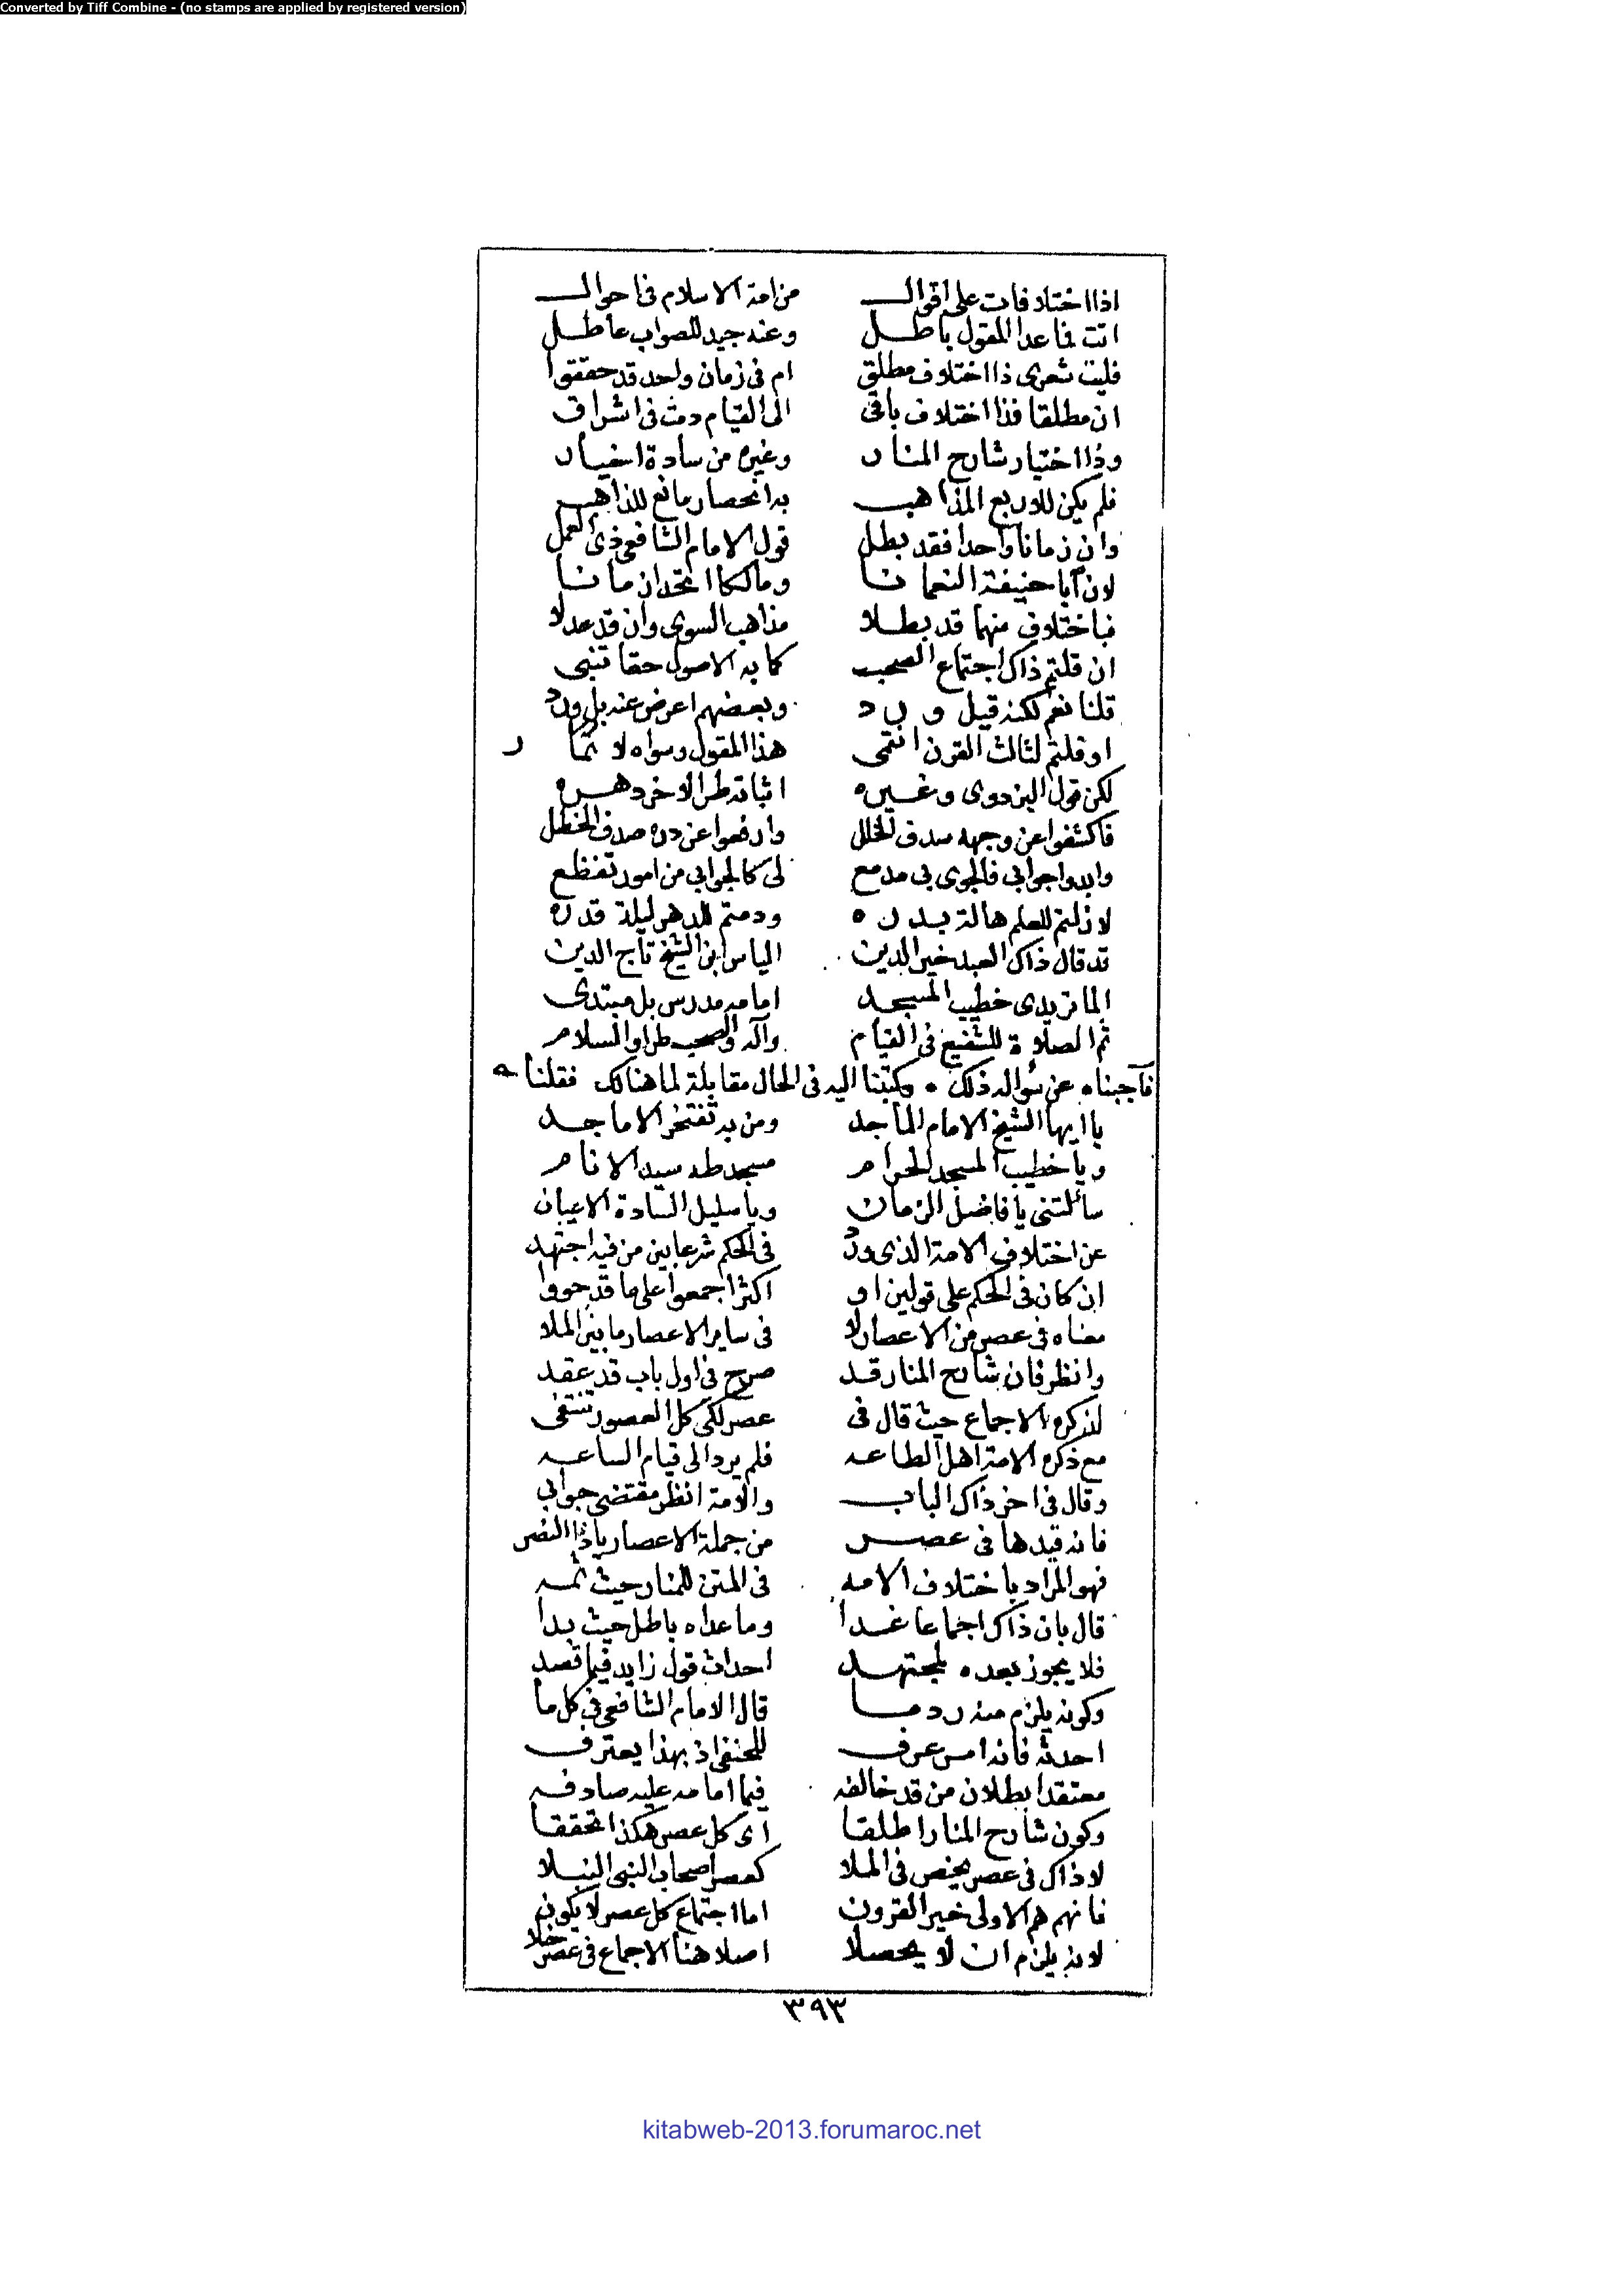 Converted by Tiff Combine - (no stamps are applied by registered version)
اذا اختلافات على اقوال من امة الاسلام فى احوال
اتت فما عدا المقول باطل وعند جيد للصواب عاطل
فليت شعرى ذا اختلاف مطلق ام فى زمان واحد قد حققوا
ان مطلقا فذا اختلاف باقى الى القيام دمث فى اشراق
وذا اختيار شارح المنار وغيره من سادة اخيار
فلم يكن للاربع المذاهب به انحصار مانع للذاهب
وان زمانا واحدا فقد بطل قول الامام الشافعى ذى العمل
لان ابا حنيفة النعمانا ومالكا اتحدا زمانا
فباختلاف منهما قد بطلا مذاهب السوى وان قد عدلا
ان قلتم ذاك اجتماع الصحب كما به الاصول حقا تنبى
قلنا نعم لكنه قيل ورد وبعضهم اعرض عنه بل ورد
او قلتم لثالث القرن انتمى هذا المقول وسواه لا نما
لكن قول البزدوى وغيره اثباته طرا لاخر دهره
فاكشفوا عن وجهه سدف الخلل وارفعوا عن دره صدف الخطل
وابدوا جوابى فالجوى بى مدمع لى كالجوابى من امور تفظع
لا زلتم للعلم هالة بدره ودمتم للدهر ليلة قدره
قد قال ذاك العبد خير الدين الياس ابن الشيخ تاج الدين
الماتريدى خطيب المسجد امامه مدرس بل مبتدى
ثم الصلاة للشفيع فى القيام وآله والصحب طرا والسلام
فأجبناه عن سؤاله ذلك ٠ وكتبنا اليه فى الحال مقابلة لما هنالك فقلنا
يا ايها الشيخ الامام الماجد ومن به تفتخر الاماجد
ويا خطيب المسجد الحرام مسجد طه سيد الانام
سألتنى يا فاضل الزمان ويا سليل السادة الاعيان
عن اختلاف الامة الذى ورد فى الحكم شرعا بين من فيه اجتهد
ان كان فى الحكم على قولين او اكثر اجمعوا على ما قد حووا
معناه فى عصر من الاعصار لا فى ساير الاعصار ما بين الملا
وانظر فان شارح المنار قد صرح فى اول باب قد عقد
لذكره الاجماع حيث قال فى عصر لكى كل العصور تنتفى
مع ذكره الامة اهل الطاعه فلم يرد الى قيام الساعه
وقال فى اخر ذاك الباب والامة انظر مقتضى جوابى
فانه قيدها فى عصر من جملة الاعصار يا ذا النصر
فهو المراد باختلاف الامه فى المتن للمنار حيث ثمه
قال بان ذاك اجماعا غدا وما عداه باطل حيث بدا
فلا يجوز بعده لمجتهد احداث قول زايد فيما قصد
وكونه يلزم منه رد ما قال الامام الشافعى فى كل ما
احدثه فانه امر عرف للحنفى اذ بهذا يعترف
معتقدا بطلان من قد خالفه فيما امامه عليه صادفه
وكون شارح المنار اطلقا اى كل عصر هكذا تحققا
لا ذاك فى عصر يخص فى الملا كعصر اصحاب النبى النبلا
فانهم هم الاولى خير القرون اما اجتماع كل عصر لا يكون
لانه يلزم ان لا يحصلا اصلا هنا الاجماع فى عصر خلا
٣٩٣
kitabweb-2013.forumaroc.net